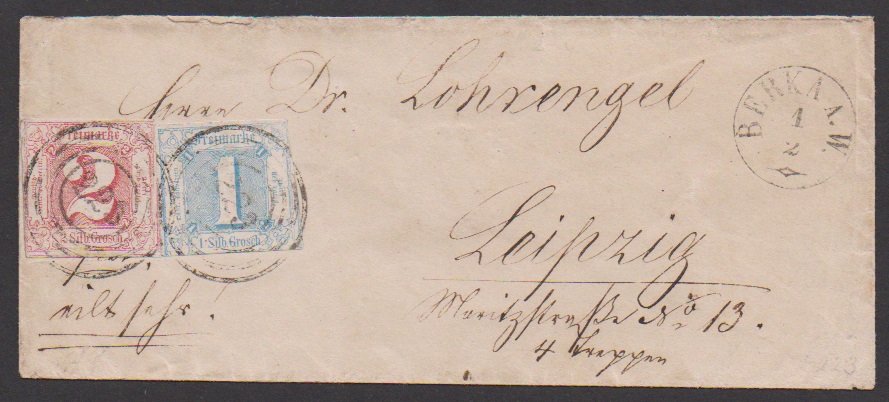 Herrn Dr. Lohrengel
BERKA A. W.
1
2
Freimarke
2
Silb. Grosch.
Freimarke
1
1 Silb. Grosch.
Leipzig
eilt sehr!
Moritzstraße No 13.
4 Treppen